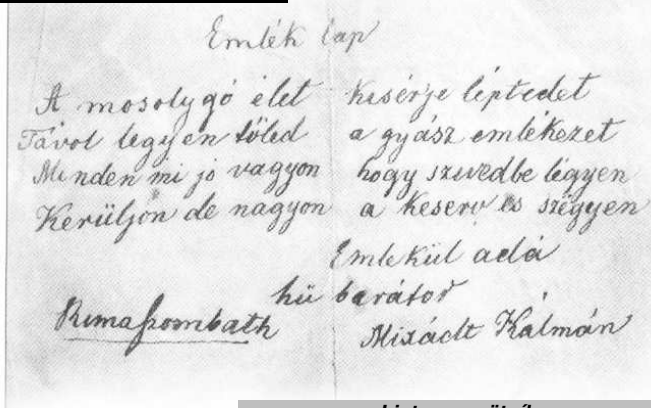 Emlék lap
A mosolygó élet kisérje léptedet
Távol légyen tőled a gyász emlékezet
Minden mi jó vagyon hogy szivedbe légyen
Kerüljön de nagyon a keserv és szégyen
Emlekül adá
hű barátod
Rimaszombath Kálmán